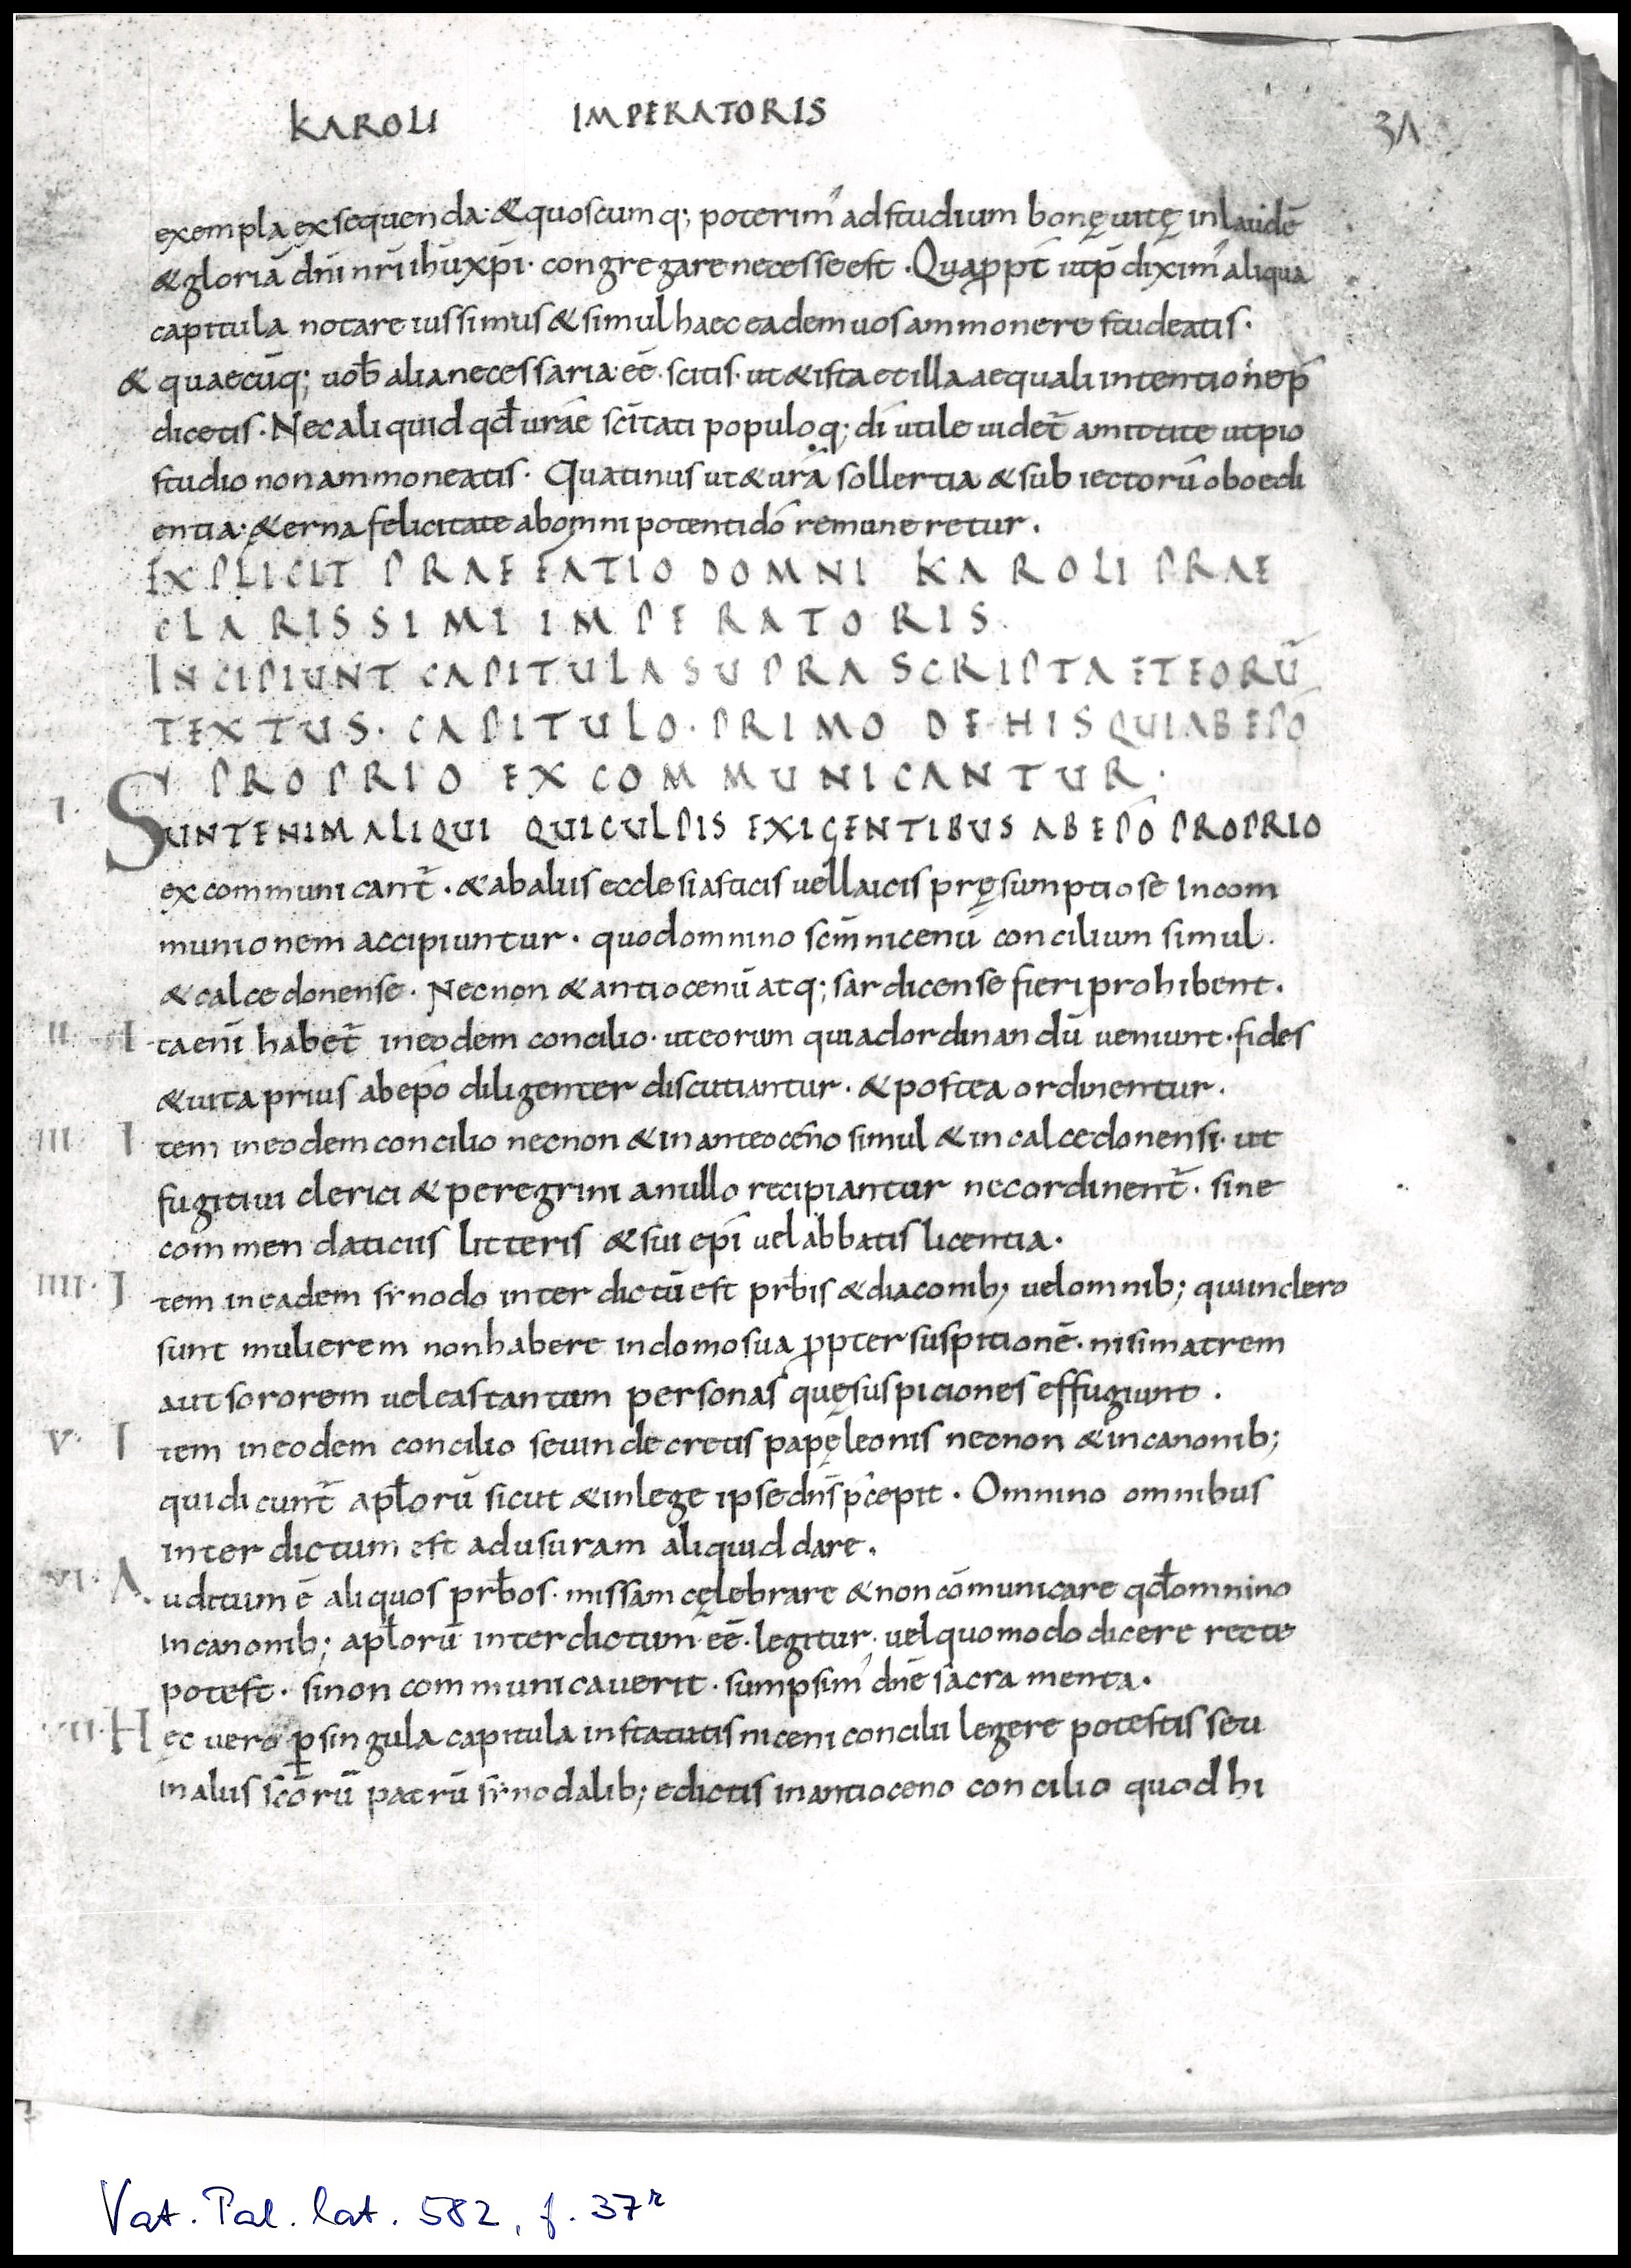 KAROLI IMPERATORIS 37
exempla exsequenda· & quoscumq; poterim' ad studium bonę uitę in laudē
& gloriā dn̄i nr̄i ih̄u xp̄i· congregare necesse est· Quapropt̄ ut p̄dixim' aliqua
capitula notare iussimus & simul haec eadem uos ammonere studeatis·
& quaecūq; uob̄ alia necessaria eē· scitis· ut & ista et illa aequali intentione p̄
dicetis· Nec aliquid qd̄ urāe sc̄itati populoq; dī utile uidet̄ amittite ut pio
studio non ammoneatis· Quatinus ut & urā sollertia & subiectorū oboedi
entia· &erna felicitate ab omnipotenti dō remuneretur.
EXPLICIT PRAEFATIO DOMNI KAROLI PRAE
CLARISSIMI IMPERATORIS.
INCIPIUNT CAPITULA SUPRASCRIPTA ET EORŪ
TEXTUS· CAPITULO· PRIMO DE HIS QUI AB EPŌ
PROPRIO EXCOMMUNICANTUR·
I. SUNT ENIM ALIQUI QUI CULPIS EXIGENTIBUS AB EPŌ PROPRIO
excommunicant̄· & ab aliis ecclesiasticis uel laicis pręsumptiose in com
munionem accipiuntur· quod omnino sc̄m nicenū concilium simul·
& calcedonense· Necnon & antiocenū atq; sardicense fieri prohibent·
II. I taenī habet̄ in eodem concilio· ut eorum qui ad ordinandū ueniunt· fides
& uita prius ab epō diligenter discutiantur· & postea ordinentur.
III I tem in eodem concilio necnon & in anteoceno simul & in calcedonensi· ut
fugitiui clerici & peregrini a nullo recipiantur nec ordinent̄· sine
commendaticiis litteris & sui epī uel abbatis licentia·
IIII· I tem in eadem synodo interdictū est prb̄is & diaconib; uel omnib; qui in clero
sunt mulierem non habere in domo sua ꝓpter suspitionē· nisi matrem
aut sororem uel eas tantum personas quę suspiciones effugiunt.
V· I tem in eodem concilio seu in decretis papę leonis necnon & in canonib;
qui dicunt̄ apl̄orū sicut & in lege ipse dn̄s p̄cepit· Omnino omnibus
interdictum est ad usuram aliquid dare.
VI· A uditum ē aliquos prb̄os· missam cęlebrare & non cōmunicare qd̄ omnino
in canonib; apl̄orū interdictum eē· legitur· uel quomodo dicere recte
potest· si non communicauerit· sumpsim' dn̄e sacramenta·
VII· H ęc uero ꝑ singula capitula in statutis niceni concilii legere potestis seu
in aliis sc̄orū patrū synodalib; edictis in antioceno concilio quod hi
Vat. Pal. lat. 582, f. 37r